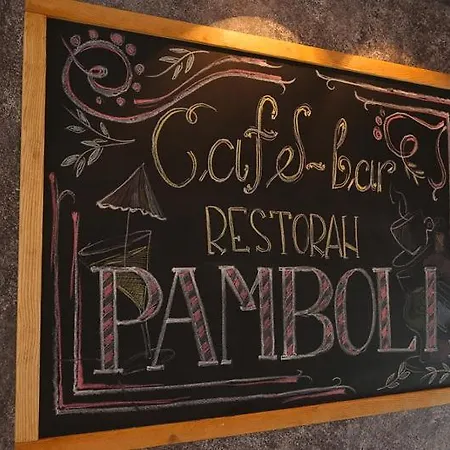 Cafe-bar
RESTORAH
PAMBOLI